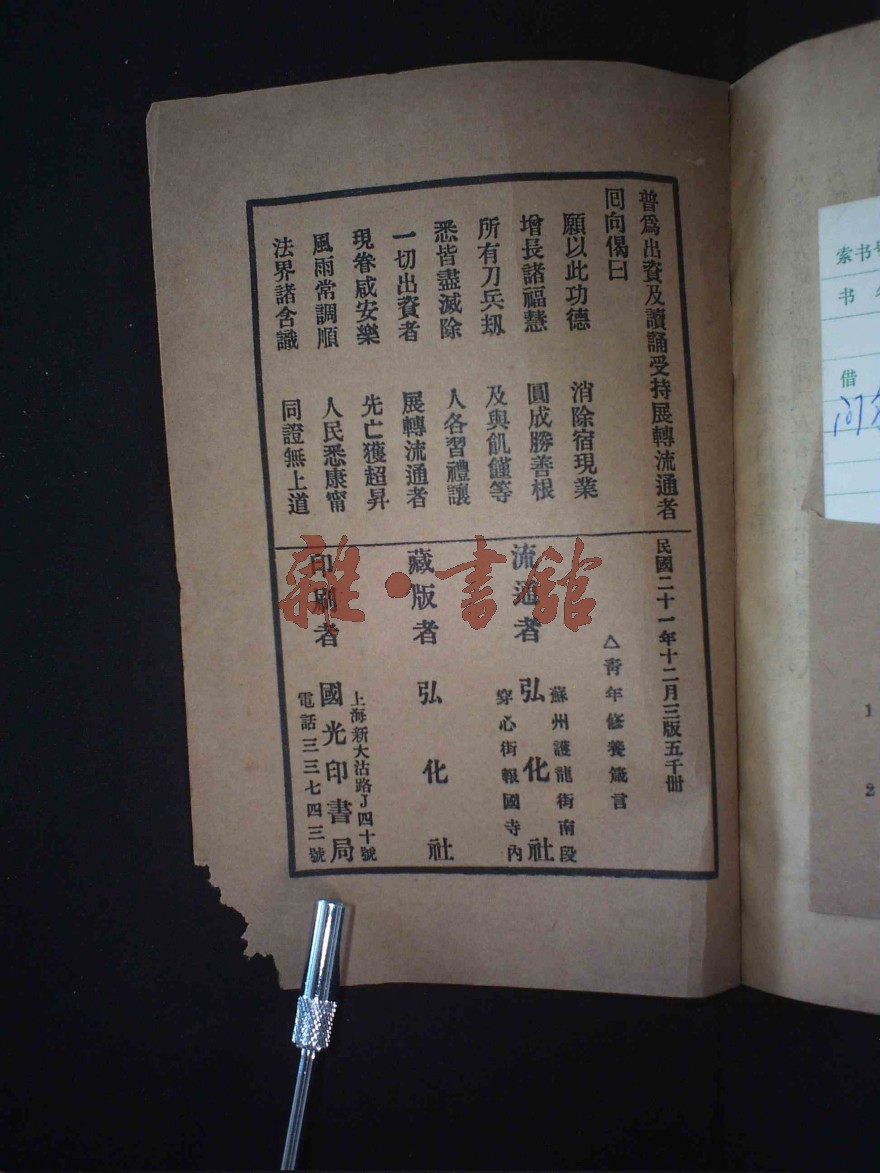 普爲出資及讀誦受持展轉流通者
回向偈曰
願以此功德　消除宿現業
增長諸福慧　圓成勝善根
所有刀兵劫　及與飢饉等
悉皆盡滅除　人各習禮讓
一切出資者　展轉流通者
現眷咸安樂　先亡獲超昇
風雨常調順　人民悉康甯
法界諸含識　同證無上道
民國二十一年十二月三版五千冊
△青年修養箴言
流通者　弘化社
蘇州護龍街南段
穿心街報國寺內
藏版者　弘化社
印刷者　國光印書局
上海新大沽路J四十號
電話三三七四三號
雜·書館
索书号
书
借
1
2